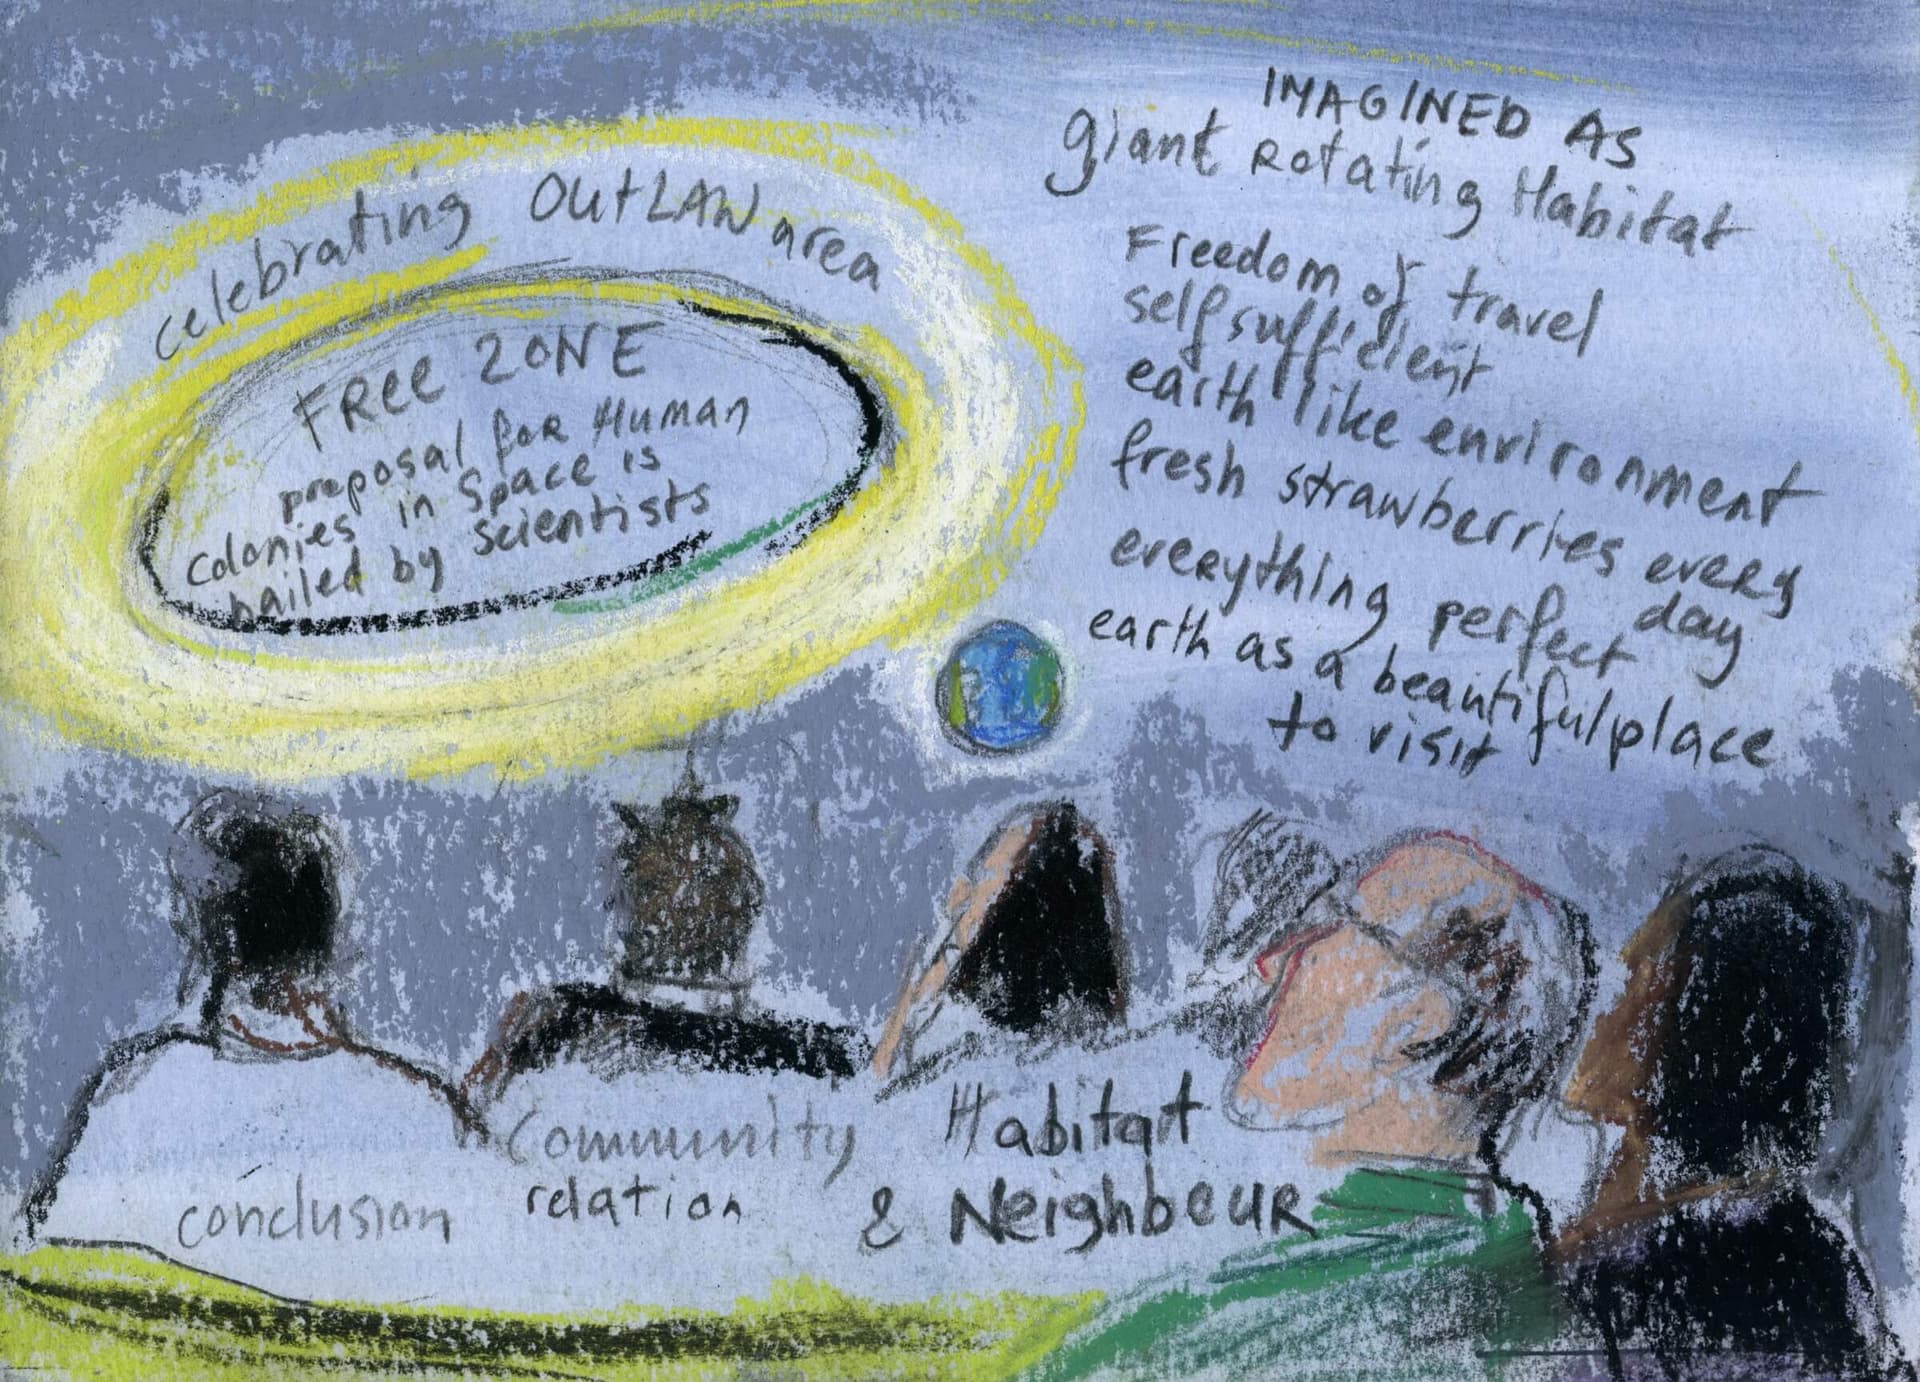 celebrating OutLAW area
FREE ZONE
proposal for Human
colonies in Space is
hailed by scientists
IMAGINED AS
giant Rotating Habitat
Freedom of travel
selfsufficient
earth like environment
fresh strawberries every
day
everything perfect
earth as a beautiful place
to visit
Community
relation
conclusion
Habitat
& Neighbour